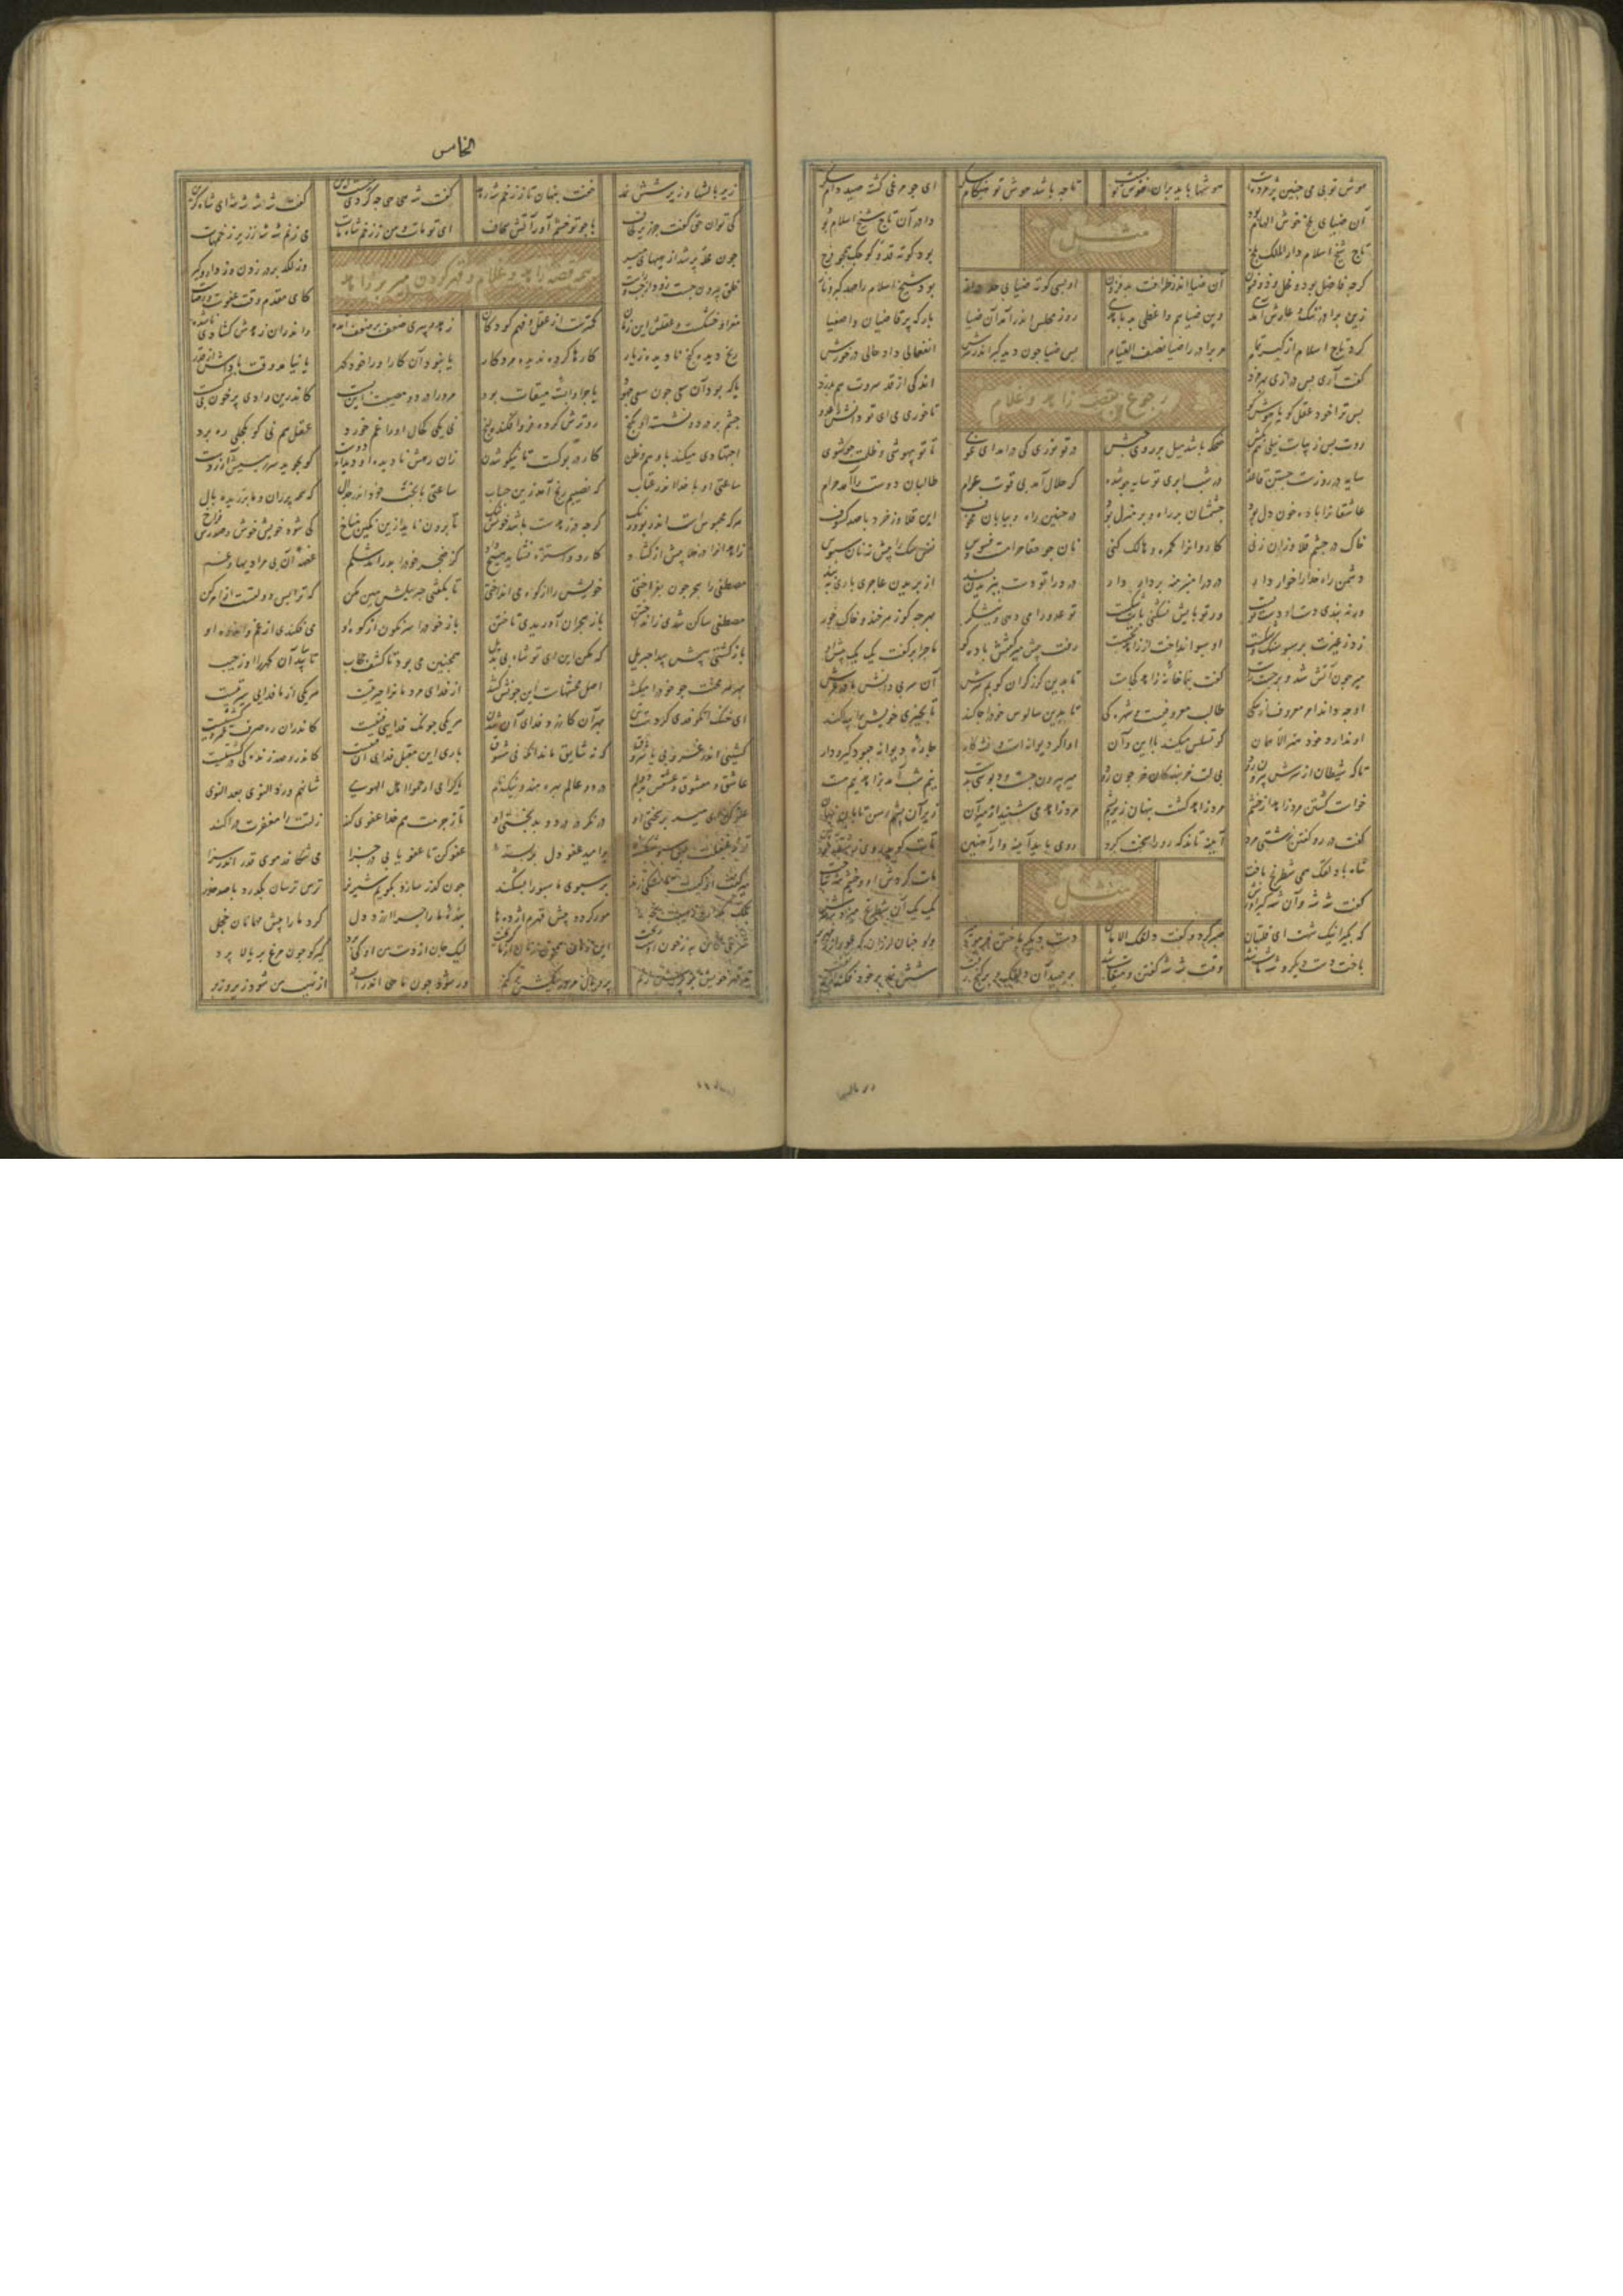 هوش تو بی می چنین پژمرده است هوشها باید بران هوش تو بست تا چه باشد هوش تو هنگام سکر ای چو مرغی گشته صید دام سکر
مثل
آن ضیای بلخ خوش الهام بود دادر آن تاج شیخ اسلام بود
تاج شیخ اسلام دار الملک بلخ بود کوته قد و کوچک همچو فرخ
گرچه فاضل بود و فحل و ذوفنون آن ضیا اندر ظرافت بد فزون او بسی کوته ضیا بی حد دراز بود شیخ اسلام را صد کبر و ناز
زین برادر ننگ و عارش آمدی وین ضیا هم واعظی بد با هدی روز محلس اندر آمد آن ضیا بارگه پر قاضیان و اصفیا
کرد تاج اسلام از کبر تمام مر برادر را ضیا نصف القیام پس ضیا چون دید کبر اندر سرش انفعالی داد حالی در خورش
گفت آری بس درازی بهر مزد اندکی از قد سروت هم بدزد
رجوع بقصه زاهد و غلام
پس ترا خود عقل کو یا هوش کو تا خوری می ای تو دانش را عدو
روت بس زیباست نیلی هم بکش ضحکه باشد نیل بر روی حبش در تو نوری کی درآمد ای غوی تا تو بیهوشی و ظلمت جو شوی
سایه در روزست جستن قاعده در شب ابری تو سایه جو شده گر حلال آمد پی قوت عوام طالبان دوست را آمد حرام
عاشقانرا باده خون دل بود چشمشان بر راه و بر منزل بود در چنین راه و بیابان مخوف این قلاوز خرد با صد کسوف
خاک در چشم قلاوزان زنی کاروانرا گمره و هالک کنی نان جو حقا حرامست و فسوس نفس سگ را پیش نه نان سبوس
دشمن راه خدا را خوار دار دزد را منبر منه بر دار دار دزد را تو دست ببریدن پسند از بریدن عاجزی باری ببند
ور نه بندی دست او دست تو بست ور تو پایش نشکنی پایت شکست تو عدو را می دهی و نیشکر بهر چه گو زهر خند و خاک خور
زد ز غیرت بر سبو سنگ و شکست او سبو انداخت از زاهد بجست رفت پیش میر گفتش باده کو ماجرا را گفت یک یک پیش او
میر چون آتش شد و برجست راست گفت بنما خانهٔ زاهد کجاست تا بدین گرز گران کوبم سرش آن سر بی دانش مادر غرش
او چه داند امر معروف از سگی طالب معروفیست و شهرگی تا بدین سالوس خود را جا کند تا بچیزی خویشتن پیدا کند
او ندارد خود هنر الا همان کو تسلس میکند با این و آن او اگر دیوانه است و فتنه کاو چارهٔ دیوانه چبود گیر و دار
تا که شیطان از سرش بیرون رود بی لت خربندگان خر چون رود میر بیرون جست دبوسی بدست نیم شب آمد بزاهد نیم مست
خواست کشتن مرد زاهد را ز خشم مرد زاهد گشت پنهان زیر پشم مرد زاهد می شنید از میر آن زیر آن پشم رسن تابان نهان
گفت در رو گفتن زشتی مرد آینه تاند که رو را سخت کرد روی باید آینه وار آهنین تات گوید روی زشت خود ببین
مثل
شاه با دلقک همی شطرنج باخت مات کردش او و خشم شه بتاخت
گفت شه شه و آن شه کبرآورش یک یک آن شطرنج میزد بر سرش
که بگیر اینک شهت ای قلتبان صبر کرد و گفت دلقک الامان دست دیگر باختن فرمود میر او چنان لرزان که عور از زمهریر
باخت دست دیگر و شه مات شد وقت شه شه گفتن و میقات شد بر جهید آن دلقک و در کنج رفت شش نمد بر خود فکند از بیم تفت
الخامس
زیر بالشها و زیر شش نمد خفت پنهان تا ز زخم شه رهد گفت شه هی هی چه کردی چیست این گفت شه شه شه شه ای شاه گزین
کی توان حق گفت جز زیر لحاف با چو تو خشم آور آتش سجاف ای تو مات و من ز زخم شاه مات می زنم شه شه ز زیر رختهات
بقیه قصه زاهد و غلام و قهر کردن میر بر زاهد
چون محله پر شد از هیهای میر وز لگد بر در زدن وز دار و گیر
خلق بیرون جست زود از چپ و راست کای مقدم وقت عفوست و رضاست
مغز او خشکست و عقلش این زمان کمترست از عقل و فهم کودکان زهد و پیری ضعف بر ضعف آمده واندران زهدش گشادی ناشده
رنج دیده گنج نادیده ز یار کارها کرده ندیده مزد کار یا نبود آن کار او را خود گهر یا نیامد وقت پاداش از قدر
یا که بود آن سعی چون سعی جهود یا جزا وابسته میقات بود مر ورا درد و مصیبت این بسست کاندرین وادی پر خون بی کسست
چشم پر درد و نشسته او بکنج رو ترش کرده فرو افکنده لنج نی یکی کحال او را غم خورد عقل هم نی کو بکحلی ره برد
اجتهادی میکند با وهم و ظن کار در بوکست تا نیکو شدن زان رهش تا دیدار دوست کو نجوید سر رئیسیش آرزوست
ساعتی او با خدا اندر عتاب که نصیبم رنج آمد زین حساب ساعتی با بخت خود اندر جدال که همه پران و ما ببریده بال
هر که محبوس است اندر بو و رنگ گرچه در زهدست باشد خوش تنگ تا برون ناید ازین ننگین مناخ کی شود خویش خوش و صدرش فراخ
زاهدانرا در خلا پیش از گشاد کارد و استره نشاید هیچ داد کز ضجر خود را بدراند شکم غصه آن بی مرادیها و غم
مصطفی را هجر چون بفراختی خویش را از کوه می انداختی تا بگفتی جبرئیلش هین مکن که ترا بس دولتست از امر کن
مصطفی ساکن شدی ز انداختن باز هجران آوریدی تاختن باز خود را سرنگون از کوه او می فکندی از غم و اندوه او
باز گشتی پیش پیدا جبرئیل که مکن این ای تو شاه بی بدیل همچنین می بود تا کشف حجاب تا بیابد آن گهر را او ز جیب
بهر هر محنت چو خود را میکشند اصل محنتهاست این چونش کشند از فدای مردمانرا حیرتیست هر یکی از ما فدای سیرتیست
ای خنک آنکو فدی کردست تن بهر آن کارزد فدای آن شدن هر یکی چونکه فدایی فنیست کاندران ره صرف عمر و کشتنیست
کشتنی اندر غروبی یا شروق که نه شایق ماند آنگه نی مشوق باری این مقبل فدای این فنست کاندرو صد زندگی در کشتنست
عاشق و معشوق و عشقش بر دوام در دو عالم بهره مند و نیکنام یا کرامی ارحموا اهل الهوی شانهم ورد التوی بعد التوی
عفو کن ای میر بر سختی او در نگر در درد و بدبختی او تا ز جرمت هم خدا عفوی کند زلتت را مغفرت در آکند
تو ز غفلت بس سبو بشکسته در امید عفو دل در بسته عفو کن تا عفو یابی در جزا می شکافد موی قدر اندر سزا
میر گفت او کیست کو سنگی زند بر سبوی ما سبو را بشکند چون گذر سازد بکویم شیر نر ترس ترسان بگذرد با صد حذر
مور گردد پیش قهرم اژدها بنده ما را چرا آزرد دل کرد ما را پیش مهمانان خجل
شربتی که به ز خون اوست ریخت این زمان همچون زنان از ما گریخت لیک جان از دست من او کی برد گیر کو چون مرغ بر بالا پرد
تیر قهر خویش بر پرش زنم پر و بال مرده ریگش بر کنم ور شود چون ماهی اندر آب در از نهیب من شود زیر و زبر